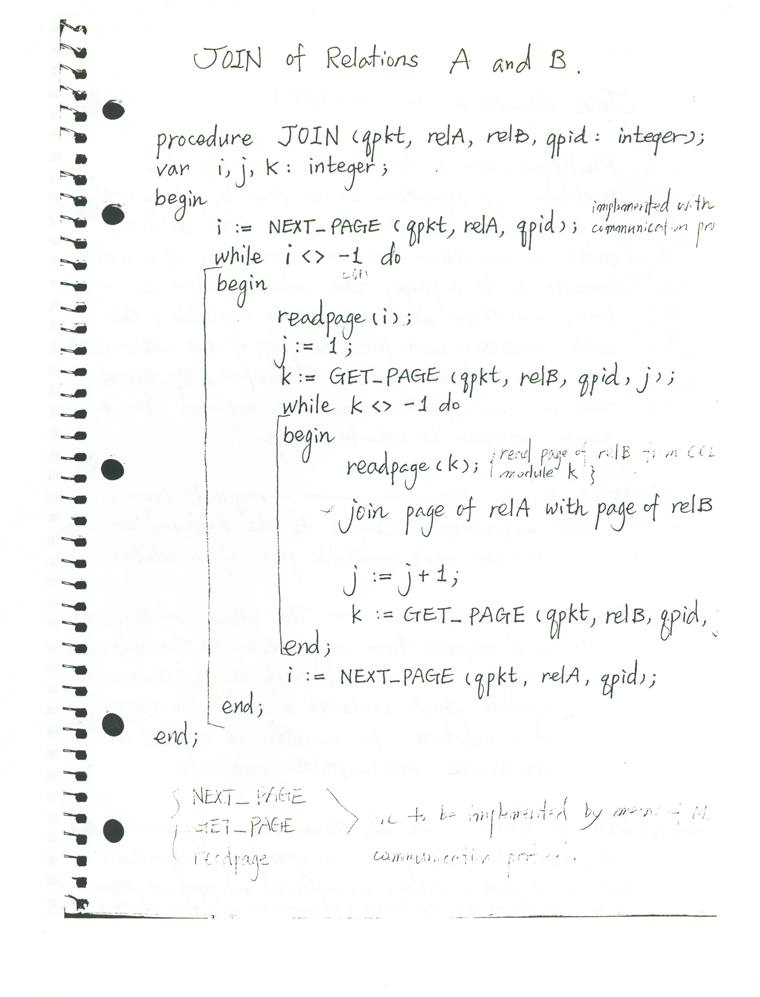 JOIN of Relations A and B.
procedure JOIN (qpkt, relA, relB, qpid : integer);
var i, j, k : integer;
begin
i := NEXT_PAGE (qpkt, relA, qpid); implemented with
communication pro
while i <> -1 do
begin
readpage (i);
j := 1;
k := GET_PAGE (qpkt, relB, qpid, j);
while k <> -1 do
begin
readpage (k); {read page of relB in CCD
module k }
join page of relA with page of relB
j := j+1;
k := GET_PAGE (qpkt, relB, qpid,
end;
i := NEXT_PAGE (qpkt, relA, qpid);
end;
end;
NEXT_PAGE
GET_PAGE
readpage
to be implemented by means of
communication